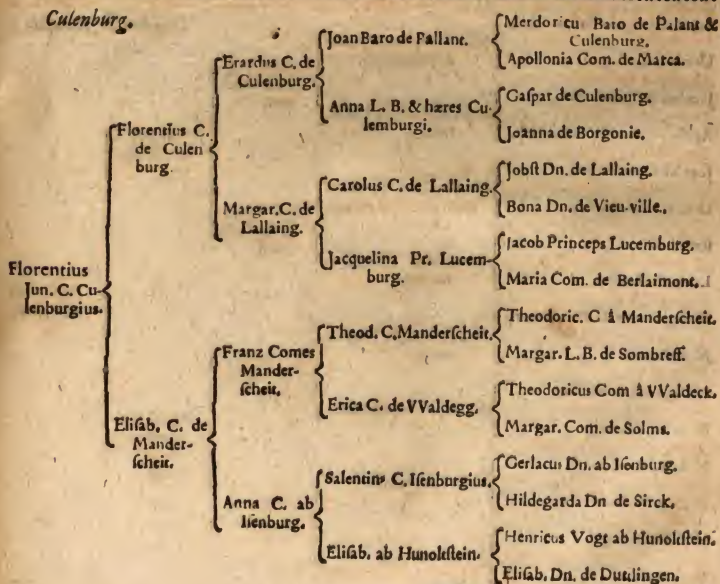 Culenburg.
Florentius
Jun. C. Cu-
lenburgius.
Florentius C.
de Culen
burg.
Elisab. C. de
Mander-
scheit.
Erardus C. de
Culenburg.
Margar. C. de
Lallaing.
Franz Comes
Mander-
scheit.
Anna C. ab
Isenburg.
Joan Baro de Pallant.
Anna L. B. & hæres Cu-
lemburgi.
Carolus C. de Lallaing.
Jacquelina Pr. Lucem-
burg.
Theod. C. Manderscheit.
Erica C. de VValdegg.
Salentin9 C. Isenburgius.
Elisab. ab Hunoltstein.
Merdoricu Baro de Palant &
Culenburg.
Apollonia Com. de Marca.
Gaspar de Culenburg.
Joanna de Borgonie.
Jobst Dn. de Lallaing.
Bona Dn. de Vieu-ville.
Jacob Princeps Lucemburg.
Maria Com. de Berlaimont.
Theodoric. C à Manderscheit.
Margar. L. B. de Sombreff.
Theodoricus Com à VValdeck.
Margar. Com. de Solms.
Gerlacus Dn. ab Isenburg.
Hildegarda Dn de Sirck.
Henricus Vogt ab Hunoltstein.
Elisab. Dn. de Duttlingen.